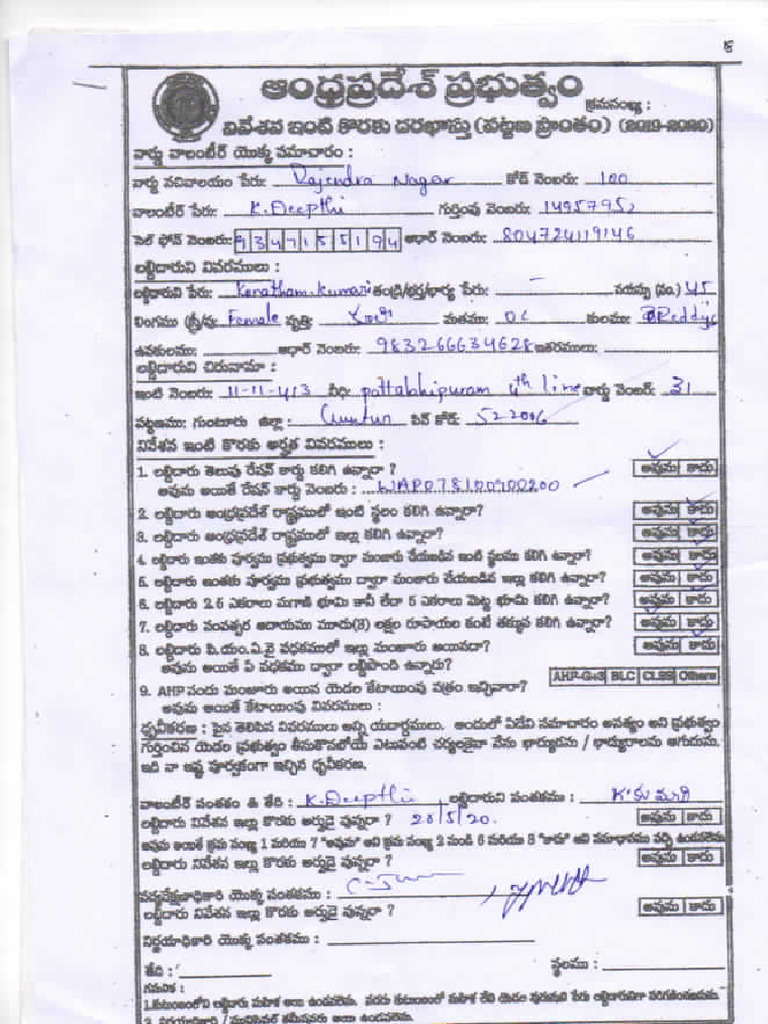 ఆంధ్రప్రదేశ్ ప్రభుత్వం
క్రమసంఖ్య :
నివేశన ఇంటి కొరకు దరఖాస్తు (పట్టణ ప్రాంతం) (2019-2020)
వార్డు వాలంటీర్ యొక్క సమాచారం :
వార్డు సచివాలయం పేరు: Rajendra Nagar కోడ్ నెంబరు: 100
వాలంటీర్ పేరు: K.Deepthi గుర్తింపు నెంబరు: 14957952
సెల్ ఫోన్ నెంబరు: 9347155194 ఆధార్ నెంబరు: 804724119146
లబ్ధిదారుని వివరములు :
లబ్ధిదారుని పేరు: kumari తండ్రి/భర్త/భార్య పేరు: - వయస్సు (సం.) 45
లింగము (స్త్రీ/పు): Female వృత్తి: మతము: OC కులము: Reddy
ఉపకులము: ఆధార్ నెంబరు: 983266634628 ఇతరములు:
లబ్ధిదారుని చిరునామా :
ఇంటి నెంబరు: 11-11-413 వీధి: pattabhipuram 4th line వార్డు నెంబర్: 31
పట్టణము: గుంటూరు జిల్లా: Guntur పిన్ కోడ్: 522006
నివేశన ఇంటి కొరకు అర్హత వివరములు :
1. లబ్ధిదారు తెలుపు రేషన్ కార్డు కలిగి ఉన్నారా ? అవును కాదు
అవును అయితే రేషన్ కార్డు నెంబరు : WAP078100900200
2. లబ్ధిదారు ఆంధ్రప్రదేశ్ రాష్ట్రములో ఇంటి స్థలం కలిగి ఉన్నారా? అవును కాదు
3. లబ్ధిదారు ఆంధ్రప్రదేశ్ రాష్ట్రములో ఇల్లు కలిగి ఉన్నారా? అవును కాదు
4. లబ్ధిదారు ఇంతకు పూర్వము ప్రభుత్వము ద్వారా మంజూరు చేయబడిన ఇంటి స్థలము కలిగి ఉన్నారా? అవును కాదు
5. లబ్ధిదారు ఇంతకు పూర్వము ప్రభుత్వము ద్వారా మంజూరు చేయబడిన ఇల్లు కలిగి ఉన్నారా? అవును కాదు
6. లబ్ధిదారు 2.5 ఎకరాలు మగాణి భూమి కానీ లేదా 5 ఎకరాలు మెట్ట భూమి కలిగి ఉన్నారా? అవును కాదు
7. లబ్ధిదారు సంవత్సర ఆదాయము మూడు(3) లక్షల రూపాయల కంటే తక్కువ కలిగి ఉన్నారా? అవును కాదు
8. లబ్ధిదారు పి.యం.ఏ.వై పథకములో ఇల్లు మంజూరు అయినదా? అవును కాదు
అవును అయితే ఏ పథకము ద్వారా లబ్ధిపొంది ఉన్నారు? AHP-G+3 BLC CLSS Others
9. AHP నందు మంజూరు అయిన యెడల కేటాయింపు పత్రం ఇచ్చినారా?
అవును అయితే కేటాయింపు వివరములు :
ధృవీకరణ : పైన తెలిపిన వివరములు అన్ని యదార్థములు. అందులో ఏదేని సమాచారం అసత్యం అని ప్రభుత్వం
గుర్తించిన యెడల ప్రభుత్వం తీసుకొనబోయే ఎటువంటి చర్యలకైనా నేను భాద్యుడను / భాద్యురాలను అగుదును.
ఇది నా ఇష్ట పూర్వకంగా ఇచ్చిన ధృవీకరణ.
వాలంటీర్ సంతకం & తేది : K.Deepthi లబ్ధిదారుని సంతకము : K కుమారి
లబ్ధిదారు నివేశన ఇల్లు కొరకు అర్హుడై వున్నరా ? 20/5/20. అవును కాదు
అవును అయితే క్రమ సంఖ్య 1 మరియు 7 "అవును" అని క్రమ సంఖ్య 2 నుండి 6 మరియు 8 "కాదు" అని సమాధానము వచ్చి ఉండవలెను
లబ్ధిదారు నివేశన ఇల్లు కొరకు అర్హుడై వున్నరా ? అవును కాదు
పర్యవేక్షణాధికారి యొక్క సంతకము :
లబ్ధిదారు నివేశన ఇల్లు కొరకు అర్హుడై వున్నరా ? అవును కాదు
నిర్ణయాధికారి యొక్క సంతకము :
తేది : స్థలము :
గమనిక :